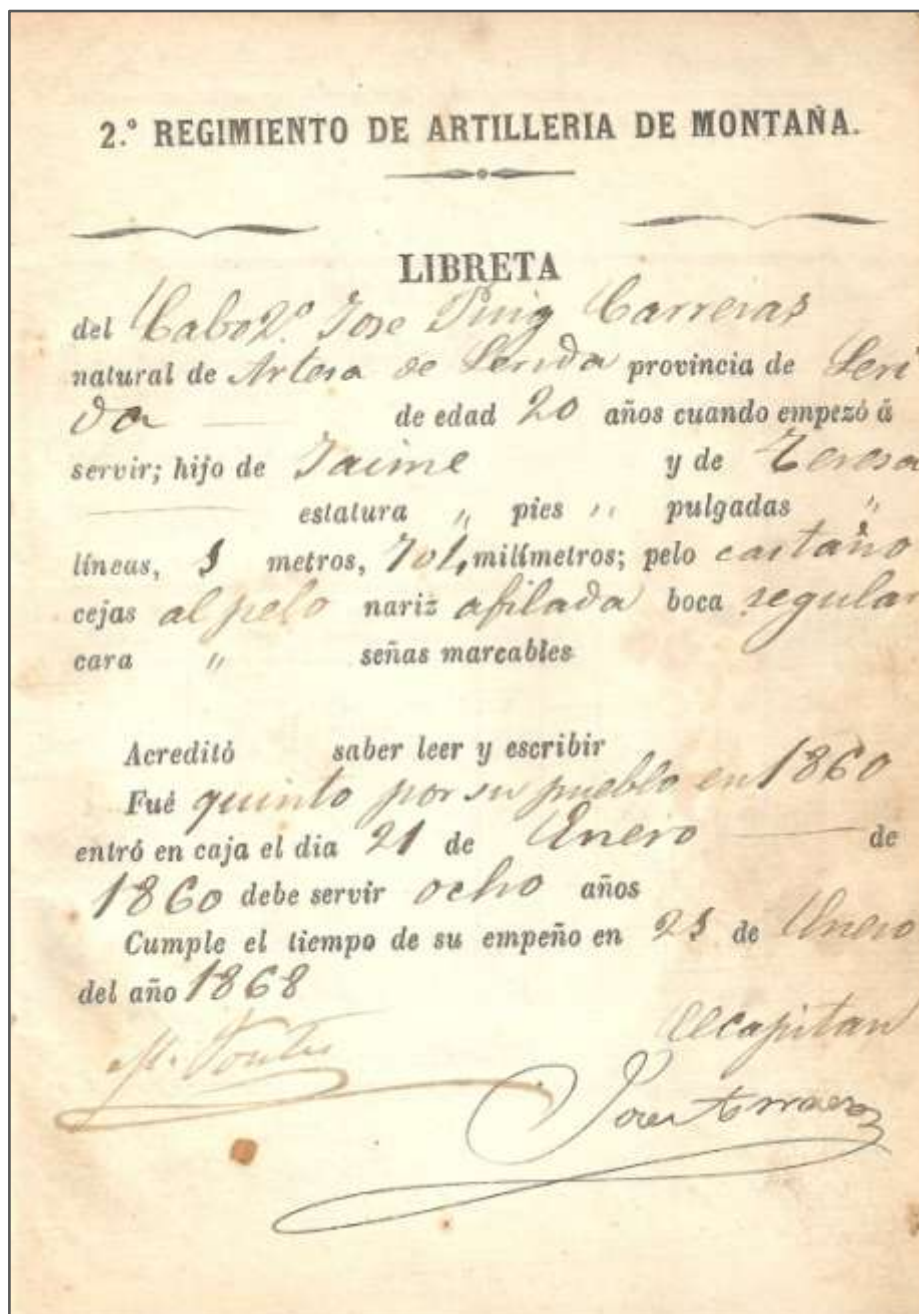 2.º REGIMIENTO DE ARTILLERIA DE MONTAÑA.
LIBRETA
del Cabo 2.º Jose Puig Carreras
natural de Artesa de Lerida provincia de Leri
da de edad 20 años cuando empezó á
servir; hijo de Jaime y de Teresa
estatura „ pies „ pulgadas „
líneas, 1 metros, 701, milímetros; pelo castaño
cejas al pelo nariz afilada boca regular
cara „ señas marcables
Acreditó saber leer y escribir
Fué quinto por su pueblo en 1860
entró en caja el dia 21 de Enero de
1860 debe servir ocho años
Cumple el tiempo de su empeño en 21 de Enero
del año 1868
El capitan